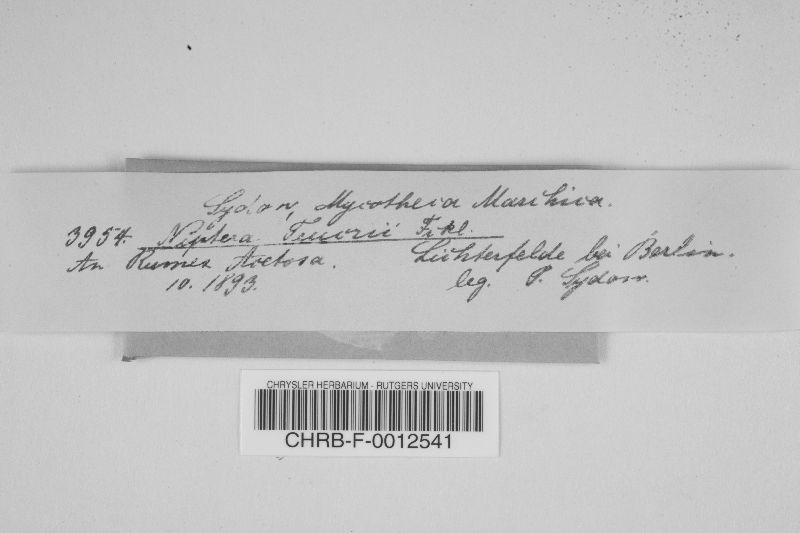 Sydow, Mycotheca Marchica.
3954. Niptera Teucrii Fckl.
An Rumex Acetosa. Lichterfelde bei Berlin.
10. 1893. leg. P. Sydow.
CHRYSLER HERBARIUM - RUTGERS UNIVERSITY
CHRB-F-0012541